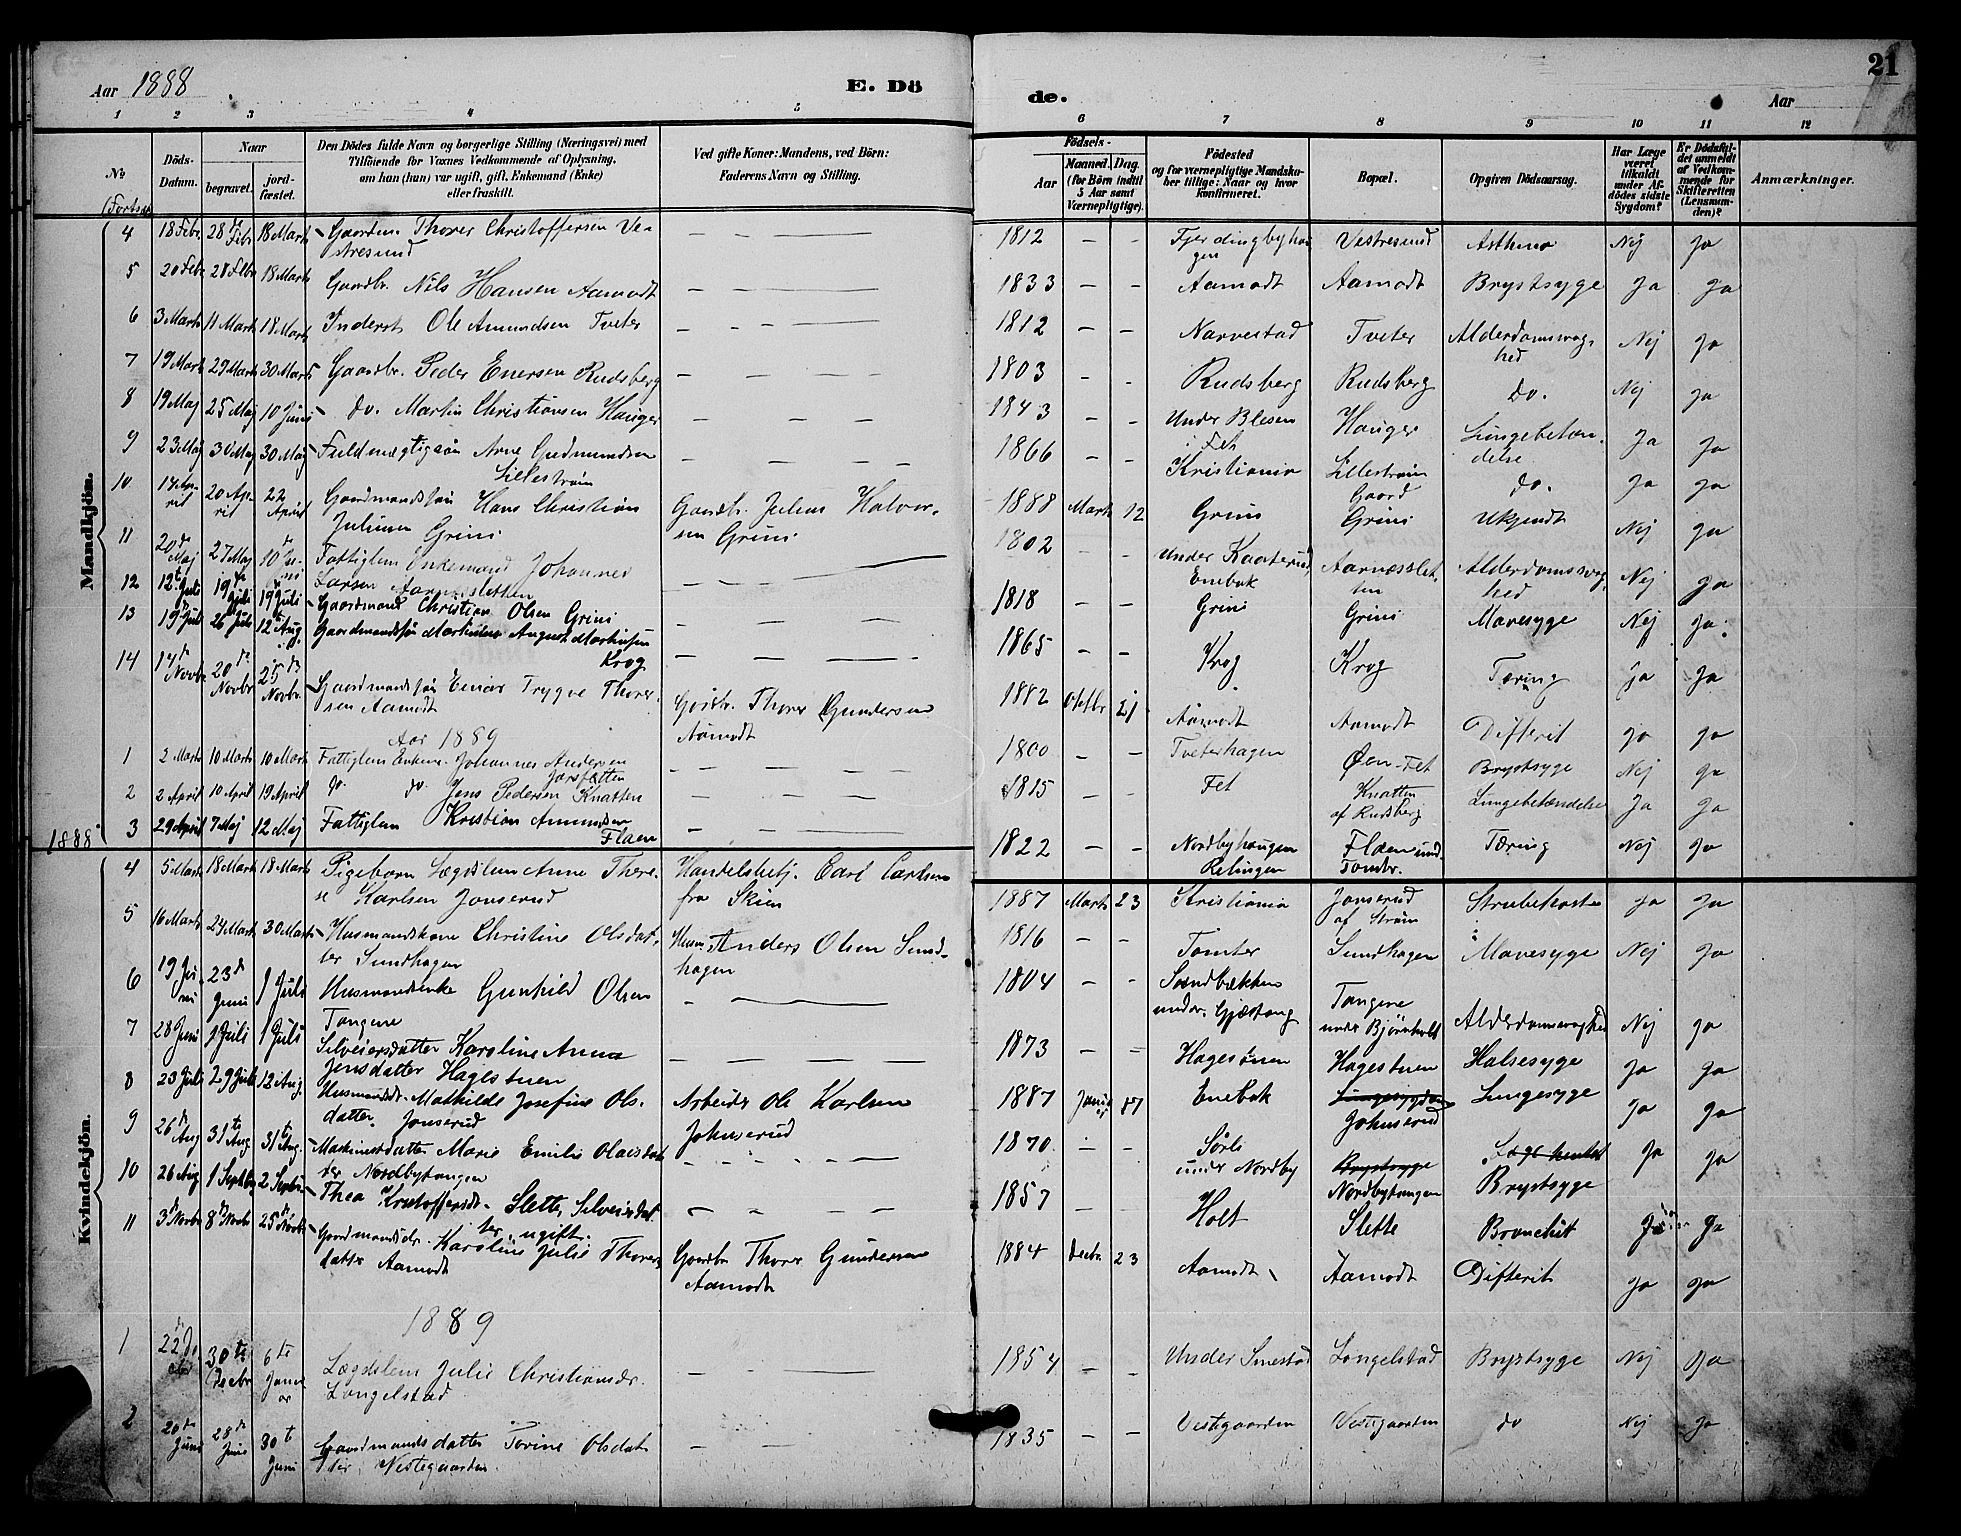 21
Aar 1888
E. Dö
de.
Aar
1 2 3 4 5 6 7 8 9 10 11 12
No
Döds-
Datum.
Naar
begravet.
jord-
fæstet.
Den Dödes fulde Navn og borgerlige Stilling (Næringsvei) med
Tilföiende for Voxnes Vedkommende af Oplysning,
om han (hun) var ugift, gift, Enkemand (Enke)
eller fraskilt.
Ved gifte Koner: Mandens, ved Börn:
Faderens Navn og Stilling.
Födsels-
Aar
Maaned. Dag.
(for Börn indtil
5 Aar samt
Værnepligtige).
Födested
og for værnepligtige Mandska-
ber tillige: Naar og hvor
konfirmeret.
Bopæl.
Opgiven Dödsaarsag.
Har Læge
været
tilkaldt
under Af-
dödes sidste
Sygdom?
Er Dödsfal-
det anmeldt
af Vedkom-
mende for
Skifteretten
(Lensman-
den)?
Anmærkninger.
Mandkjön.
4 18 Febr 28 Feb 18 Marts Gaardm. Thorer Christoffersen Ve-
stresund — — — 1812 — — Fjerdingbyhau
gen Vestresund Asthma Nej Ja
5 20 Febr 28 Febr 18 Marts Gaardbr. Nils Hansen Aamodt — — — 1833 — — Aamodt Aamodt Brystsyge Ja Ja
6 3 Marts 11 Marts 18 Marts Inderst Ole Amundsen Tveter — — — 1812 — — Narvestad Tveter Alderdomssvag-
hed Nej Ja
7 19 Marts 29 Marts 30 Marts Gaardbr. Peder Enersen Rudsberg — — — 1803 — — Rudsberg Rudsberg do. Nej Ja
8 19 Maj 25 Maj 10 Juni do. Martin Christiansen Hauger — — — 1843 — — Under Blesen
i Fet Hauger Lungebetæn-
delse Ja Ja
9 23 Maj 30 Maj 30 Maj Fuldmægtig Arne Gudmundsen
Lillestrøm — — — 1866 — — Kristiania Lillestrøm
Gaard do. Ja Ja
10 14 Ap-
ril 20 Ap-
ril 22
April Gaardmandssøn Hans Christian
Juliusen Grini Gaardbr. Julius Halvor-
sen Grini 1888 Marts 12 Grini Grini Ukjendt Nej Ja
11 20 Maj 27 Maj 10 Ju-
ni Fattiglem Enkemand Johannes
Larsen Aarnesletten — — 1802 — — Under Kaaterud,
Enebak Aarnesslet-
ten Alderdomssvag
hed Nej Ja
12 12te Juli 19 Juli 19 Juli Gaardmand Christian Olsen Grini — — — 1818 — — Grini Grini Mavesyge Nej Ja
13 19 Juli 26 Juli 12te Aug. Gaardmandssøn Martinius August Martinsen
Krog — — — 1865 — — Krog Krog Tæring Ja Ja
14 14de
Novbr 20de
Novbr 25de
Novbr. Gaardmandssøn Einar Trygve Thorer-
sen Aamodt Gaardbr. Thorer Gundersen
Aamodt 1882 Oktbr 21 Aamodt Aamodt Difterit Ja Ja
Aar 1889
1 2 Marts 10 Marts 10 Marts Fattiglem Enkem. Johannes Andersen — — — 1800 — — Tveterhagen Øen-Fet Brystsyge Nej Ja
2 2 April 10 April 19 April do do. Jens Pedersen Knatten — — — 1815 — — Fet Knatten
af Rudsberg Lungebetændelse Ja Ja
3 29 April 7 Maj 12 Maj Fattiglem Kristian Amundsen
Flaen — — — 1822 — — Nordbyhaugen
Relingen Flaen und.
Tomter. Tæring Nej Ja
1888
Kvindekjön.
4 5 Marts 18 Marts 18 Marts Pigebarn Lægdslem Anne There-
se Karlsen Jonserud Handelsbetj. Carl Carlsen
fra Skien 1887 Marts 23 Kristiania Jonserud
af Strøm Strubehoste Ja Ja
5 16 Marts 24 Marts 30 Marts Husmandskone Christine Olsdat-
ter Sundhagen Husm. Anders Olsen Sund-
hagen 1816 — — Tomter Sundhagen Mavesyge Nej Ja
6 19 Ju-
ni 23de
Juni 1 Juli Husmandsenke Gunhild Olsen
Tangene — — — 1804 — — Sandbækken
under Gjøstang Tangene
under Bjørnholt Alderdomssvaghed Nej Ja
7 28 Juni 1 Juli 1 Juli Selveiersdatter Karoline Anna
Jensdatter Hagestuen — — — 1873 — — Hagestuen Hagestuen Halsesyge Ja Ja
8 23 Juli 29 Juli 12 Aug. Husmandsd. Mathilde Josefine Ols-
datter. Jonserud Arbeider Ole Karlsen
Johnserud 1887 Janu 17 Enebak Johnserud Lungesyge Ja Ja
9 26de
Aug 31te
Aug 31te
Aug. Maskinistdatter Marie Emilie Olausdat
ter Nordbyhaugen — — — 1870 — — Sørli
under Nordby Brystsyge
Nordbyhaugen Brystsyge Ja Ja
10 26 Aug 1 Septbr 2 Septbr Thea Kristoffersdt. Slette, Selveierdat-
ter, ugift. — — — 1857 — — Holt Slette Bronchit Ja Ja
11 3de Novbr 8de Novbr 25de Novbr Gaardmandsdr. Karoline Julie Thorers
datter Aamodt Gaardbr Thorer Gundersen
Aamodt 1884 Decbr. 23 Aamodt Aamodt Difterit Ja Ja
1889
1 22de De
cbr 30te
Decbr 6te
Janu
ar Lægdslem Julie Christiansdr.
Langelstad — — 1854 — — Under Smestad Langelstad Brystsyge Nej Ja
2 20de
Juni 28de
Juni 30te
Juni Gaardmandsdatter Torine Olsdat
ter, Vestegaarden — — 1835 — — Vestigaarden Vestigaarden do Nej Ja